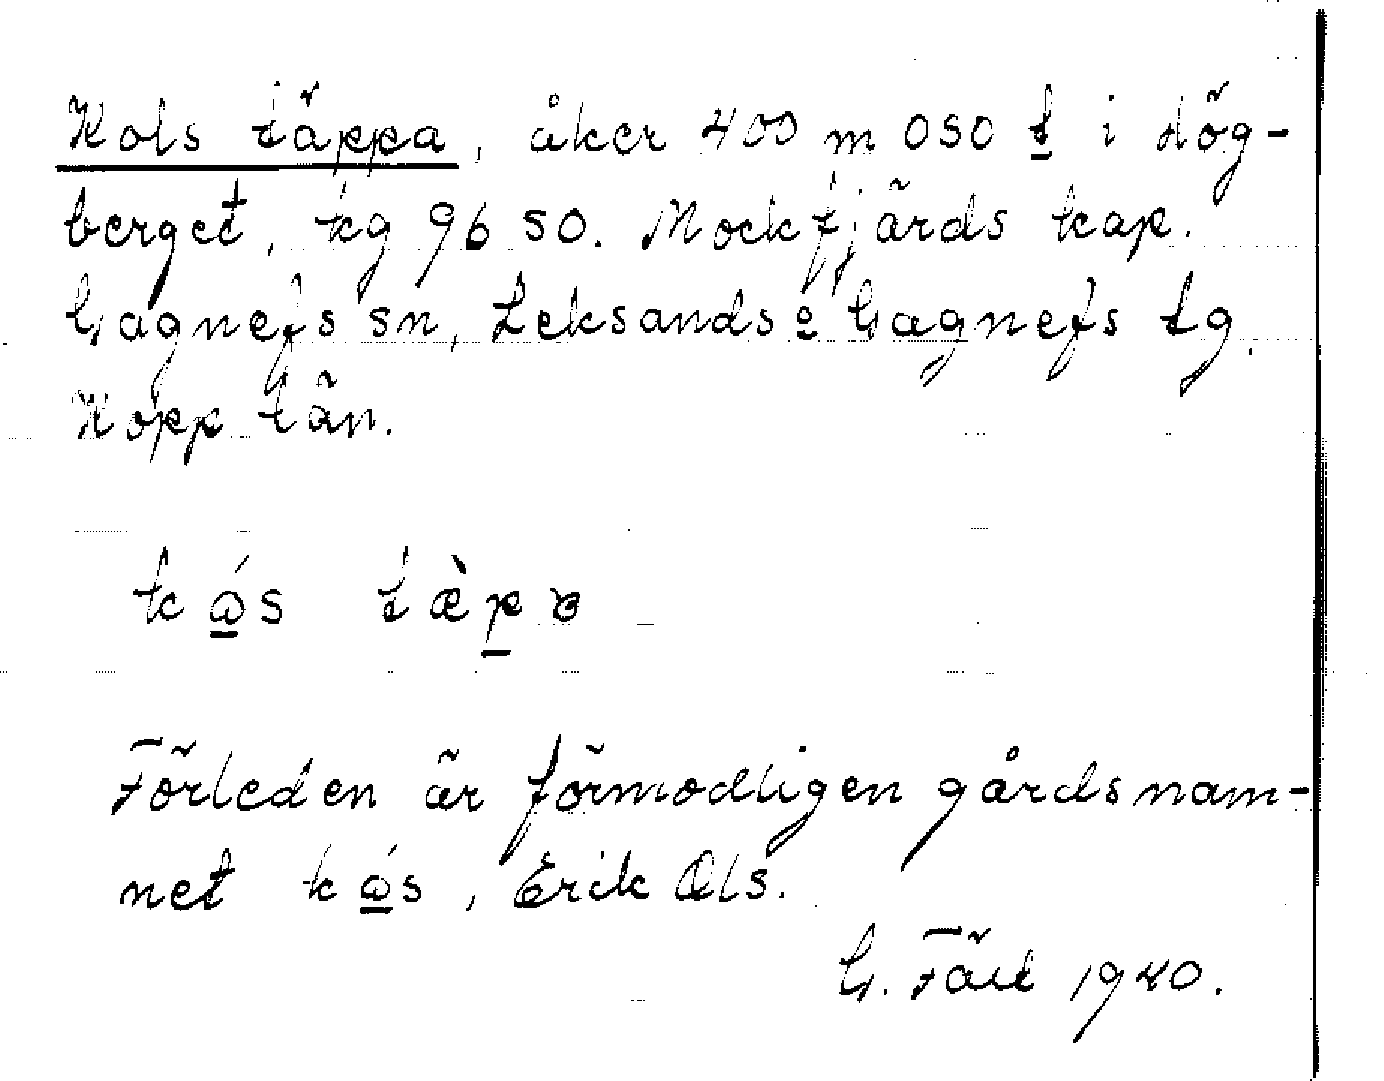 Kols täppa, åker 400 m OSO t i Hög-
berget, kg 96 50. Mockfjärds kap.
Gagnefs sn, Leksands o Gagnefs tg.
Kopp län.
kós tæ̀pɐ
Förleden är förmodligen gårdsnam-
net kós, Erik Ols.
G. Fält 1940.